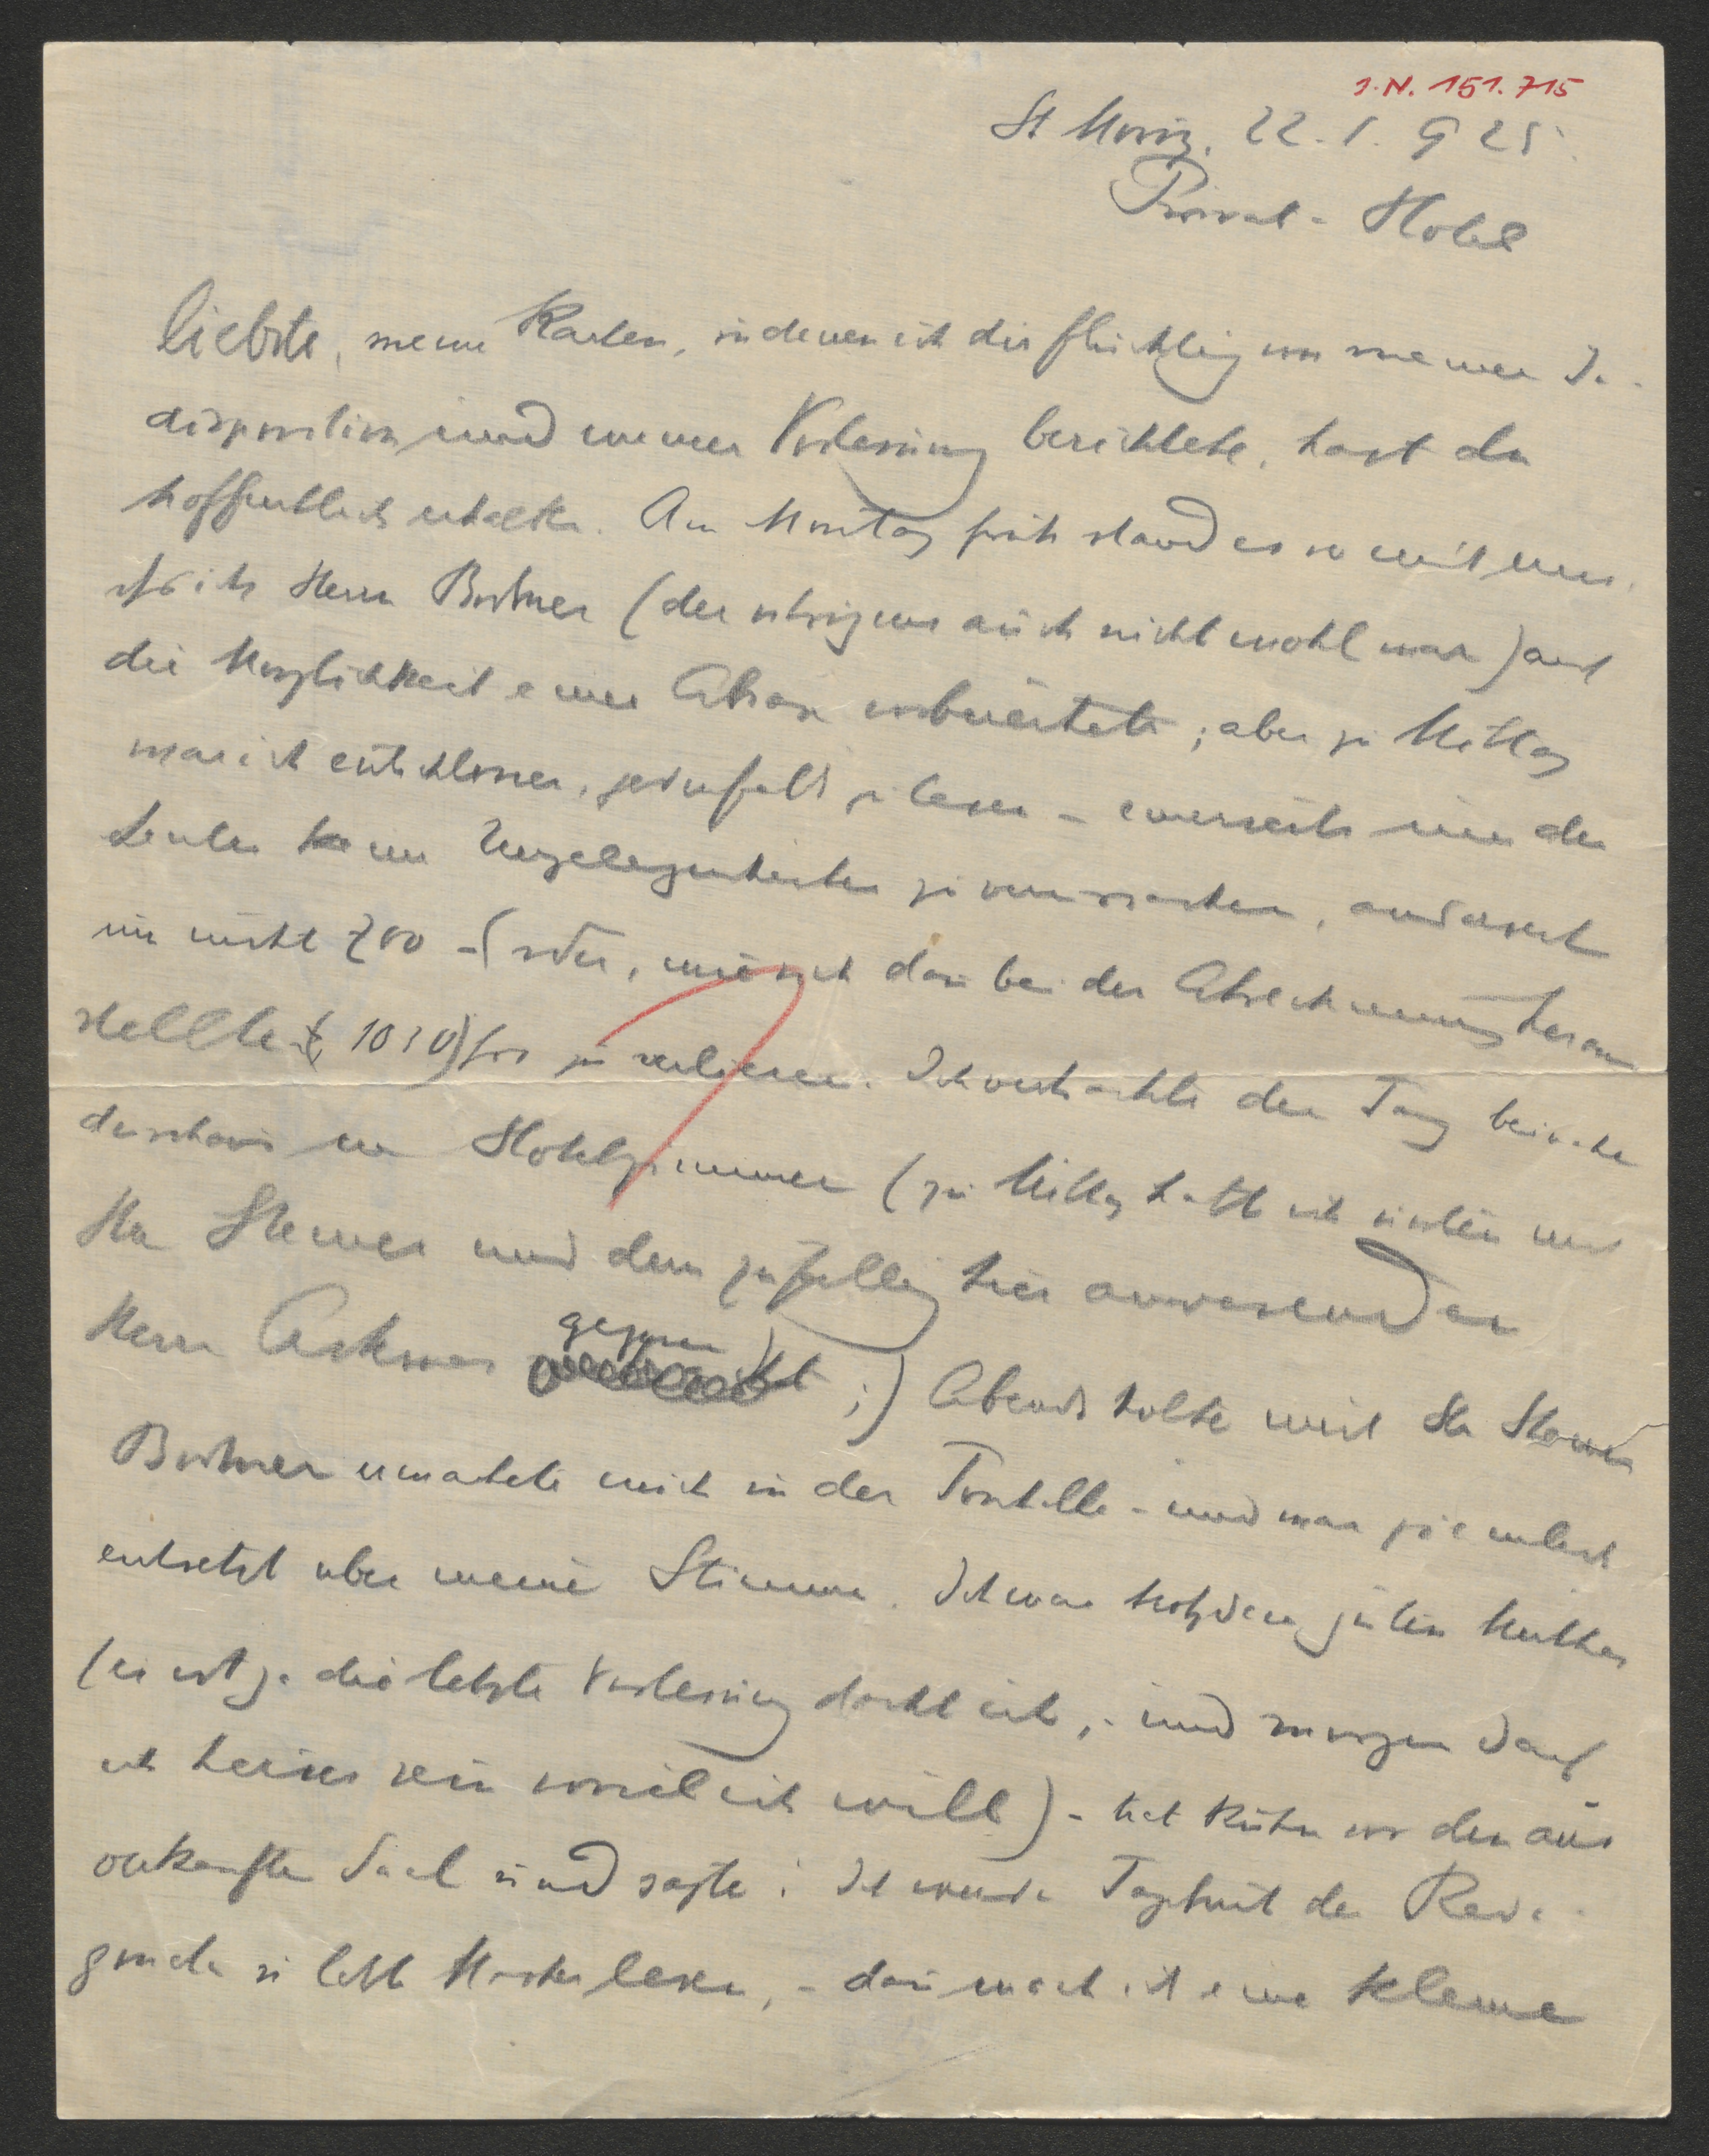 I.N. 151.715
St Moriz, 22. 1. 925.
Privat-Hotel
Liebste, meine Karten, in denen ich dir flüchtig von meiner In-
disposition und meiner Vorlesung berichtete, hast du
hoffentlich erhalten. Am Montag früh stand es so mit mir,
dss ich Herrn Bodmer (der übrigens auch nicht wohl war) auf
die Möglichkeit einer Absage vorbereitete; aber zu Mittag
war ich entschlossen, jedenfalls zu lesen – einerseits um den
Leuten keine Ungelegenheiten zu verursachen, anderseits
um nicht 700 – (oder, wie sich dann bei der Abrechnung heraus
stellte 1030) frs zu verlieren. Ich verbrachte den Tag beinahe
durchaus im Hotelzimmer (zu Mittag hatte ich unten mit
Hn und dem zufällig hier anwesenden
Herrn gegessen;) Abends holte mich Hr
Bodmer erwartete mich in der Tonhalle – und war ziemlich
entsetzt über meine Stimme. Ich war trotzdem guten Muthes
(es ist ja die letzte Vorlesung dacht ich, – und morgen darf
ich heiser sein soviel ich will) – trat kühn vor den aus
verkauften Saal und sagte: Ich werde Tagebuch der Rede-
gonda u letzte Masken lesen, – dann mach ich eine kleine